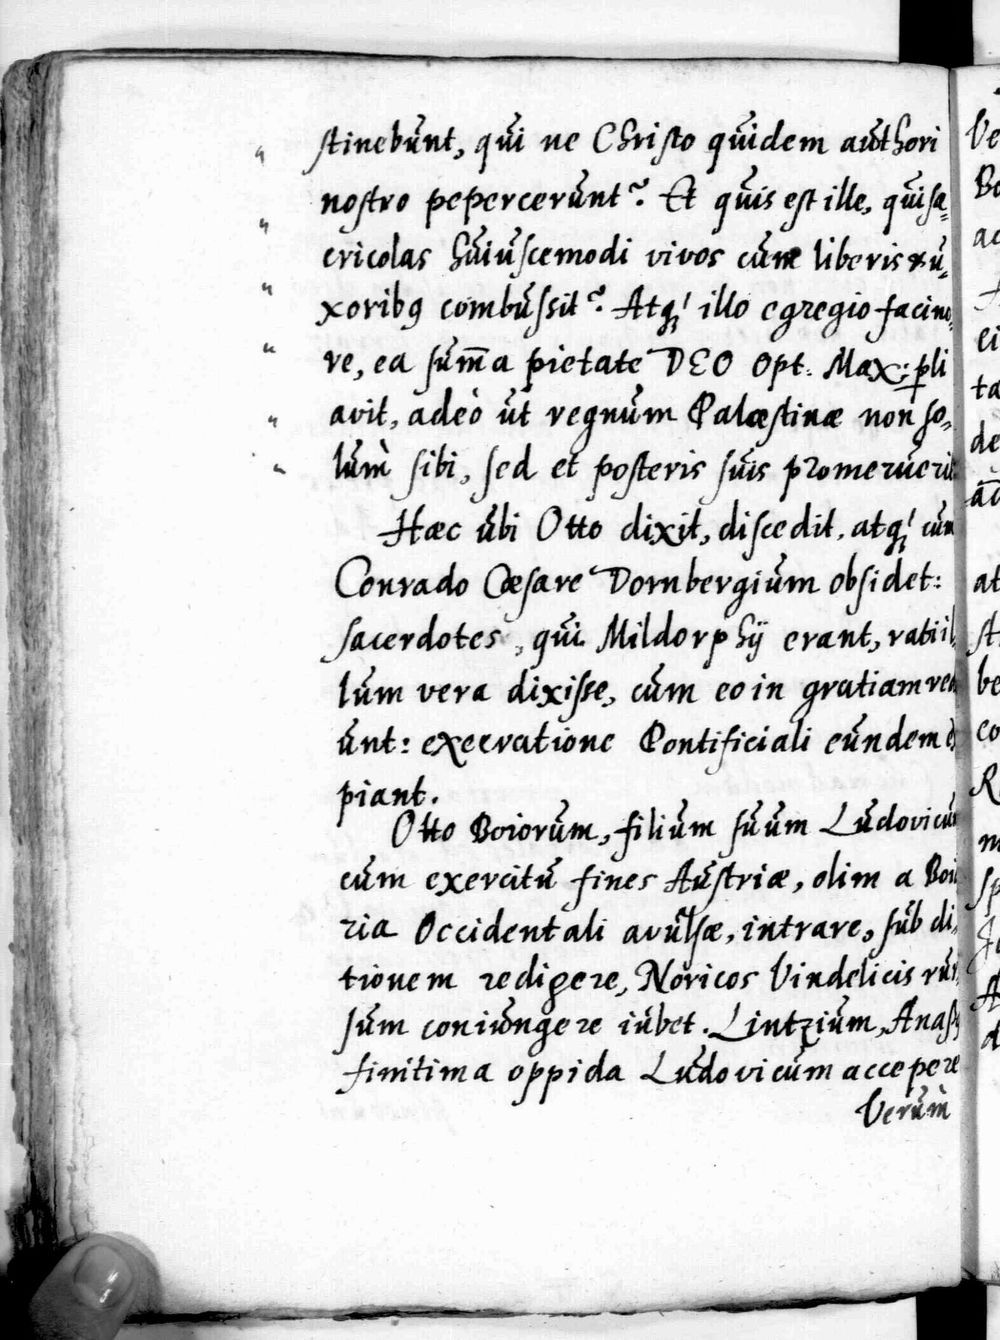 stinebunt, qui ne Christo quidem authori
nostro pepercerunt? Et quis est ille, qui sa=
cricolas huiuscemodi vivos cum liberis & u=
xoribꝫ combussit? Atqꝫ illo egregio facino=
re, ea sum̄a pietate DEO Opt. Max: ꝑli
avit, adeò ut regnum Palæstinæ non so=
lum̀ sibi, sed et posteris suis promeruerit
Hæc ubi Otto dixit, discedit, atqꝫ cum
Conrado Cæsare Dornbergium obsidet:
sacerdotes, qui Mildorphij erant, rati il=
lum vera dixisse, cum eo in gratiam red
unt: execratione Pontificiali eundem ex
piant.
Otto Boiorum, filium suum Ludovicum
cum exercitu fines Austriæ, olim a Boia
ria Occidentali avulsæ, intrare, sub di=
tionem redigere, Noricos Vindelicis rur=
sum coniungere iubet. Lintzium, Anass
finitima oppida Ludovicum accepere
Verum̀
Ve
Bo
ac
ei
ta
de
at
st
be
co
R
m
sp
A
d